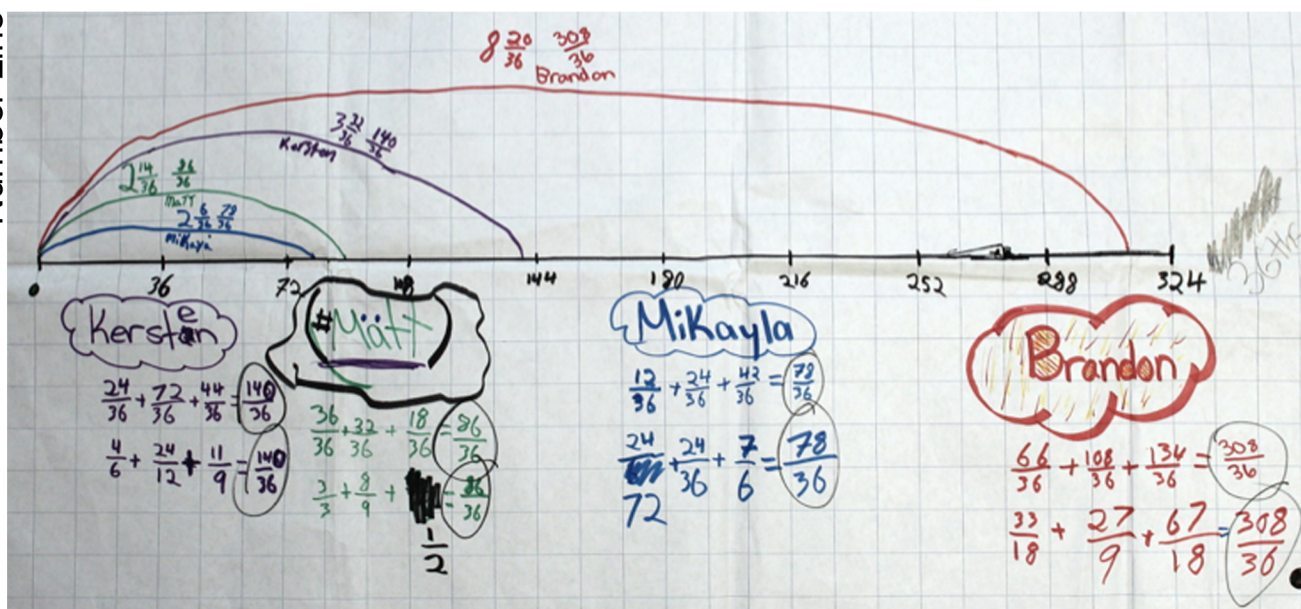 Number Line
8 20/36 308/36
Brandon
3 32/36 140/36
Kersten
2 14/36 86/36
MaTT
2 6/36 78/36
MiKaya
0 36 72 108 144 180 216 252 288 324
36ths
Kersten
24/36 + 72/36 + 44/36 = 140/36
4/6 + 24/12 + 11/9 = 140/36
#Mätt
36/36 + 32/36 + 18/36 = 86/36
3/3 + 8/9 + 1/2 = 86/36
MiKayla
12/36 + 24/36 + 42/36 = 78/36
24/72 + 24/36 + 7/6 = 78/36
Brandon
66/36 + 108/36 + 134/36 = 308/36
33/18 + 27/9 + 67/18 = 308/36